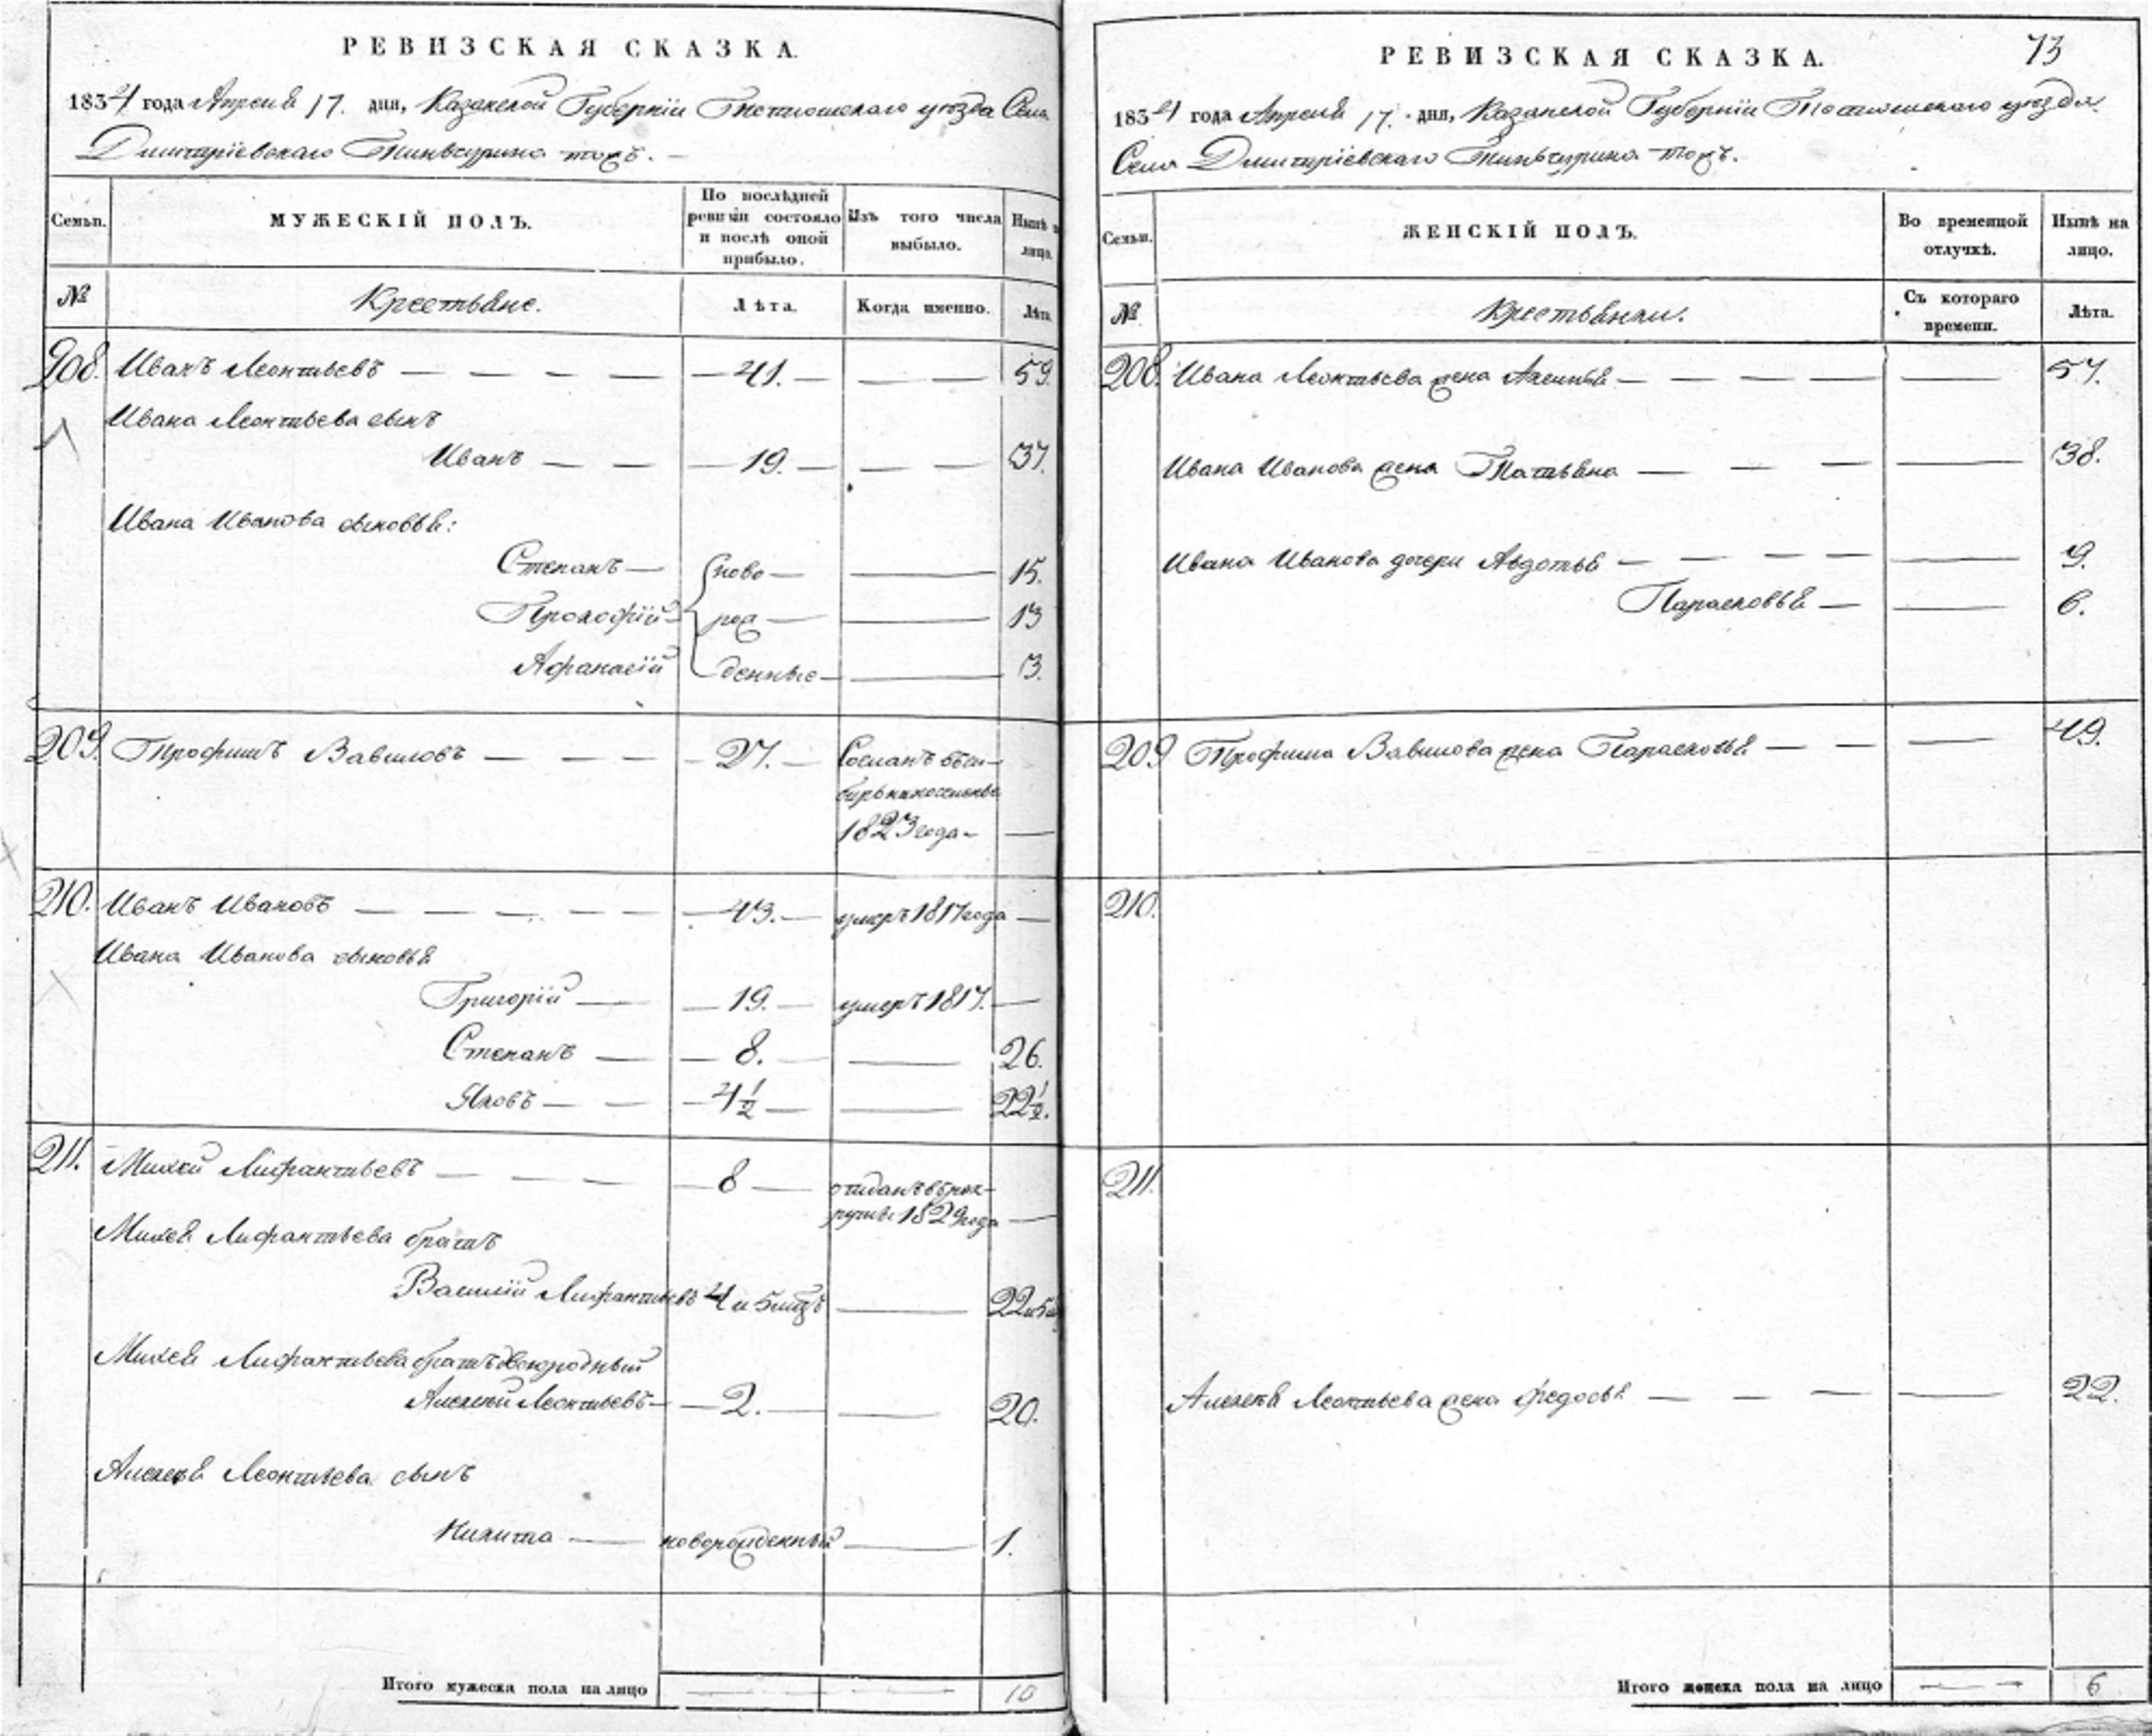 РЕВИЗСКАЯ СКАЗКА.
1834 года Апреля 17. дня, Казанской Губернїи Тетюшскаго уѣзда Села
Димитріевскаго Тинчурина тожъ.
Семьи.
МУЖЕСКІЙ ПОЛЪ.
По послѣдней
ревизіи состояло
и послѣ оной
прибыло.
Изъ того числа
выбыло.
Нынѣ на
лицо.
№
Крестьяне.
Лѣта.
Когда именно.
Лѣта.
208. Иванъ Леонтьевъ — 41. — 59
Ивана Леонтьева сынъ
Иванъ — 19. — 37.
Ивана Иванова сыновья:
Степанъ — ново — 15.
Прокофїй — рож — 13
Афанасїй денные — 3.
209. Трофимъ Вавиловъ — 27. — Сосланъ въ си-
бирь на поселенье
1823 года —
210. Иванъ Ивановъ — 43. — умеръ 1817 года —
Ивана Иванова сыновья
Григорїй — 19. — умеръ 1817. —
Степанъ — 8. — 26.
Яковъ — 4 1/2 — 22 1/2.
211. Михей Лифантьевъ — 8 — отданъ въ рек-
руты 1829 года —
Михея Лифантьева братъ
Василїй Лифантьевъ 4 и 5 мцъ — 22 и 5 м
Михея Лифантьева братъ двоюродный
Алексѣй Леонтьевъ — 2. — 20.
Алексѣя Леонтьева сынъ
Никита — новорожденный — 1.
Итого мужеска пола на лицо — — 10
73
РЕВИЗСКАЯ СКАЗКА.
1834 года Апреля 17. дня, Казанской Губернїи Тетюшскаго уѣзда
Села Димитріевскаго Тинчурина тожъ.
Семьи.
ЖЕНСКІЙ ПОЛЪ.
Во временной
отлучкѣ.
Нынѣ на
лицо.
№
Крестьянки.
Съ котораго
времени.
Лѣта.
208. Ивана Леонтьева жена Аксинья — 57.
Ивана Иванова жена Татьяна — 38.
Ивана Иванова дочери Авдотья — 9.
Парасковья — 6.
209 Трофима Вавилова жена Парасковья — 49.
210.
211.
Алексѣя Леонтьева жена Федосья — 22.
Итого женска пола на лицо — 6